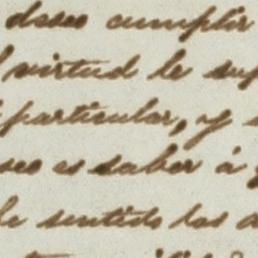 deseo cumplir
virtud le sup
particular, y
seo es saber á
le sentido las